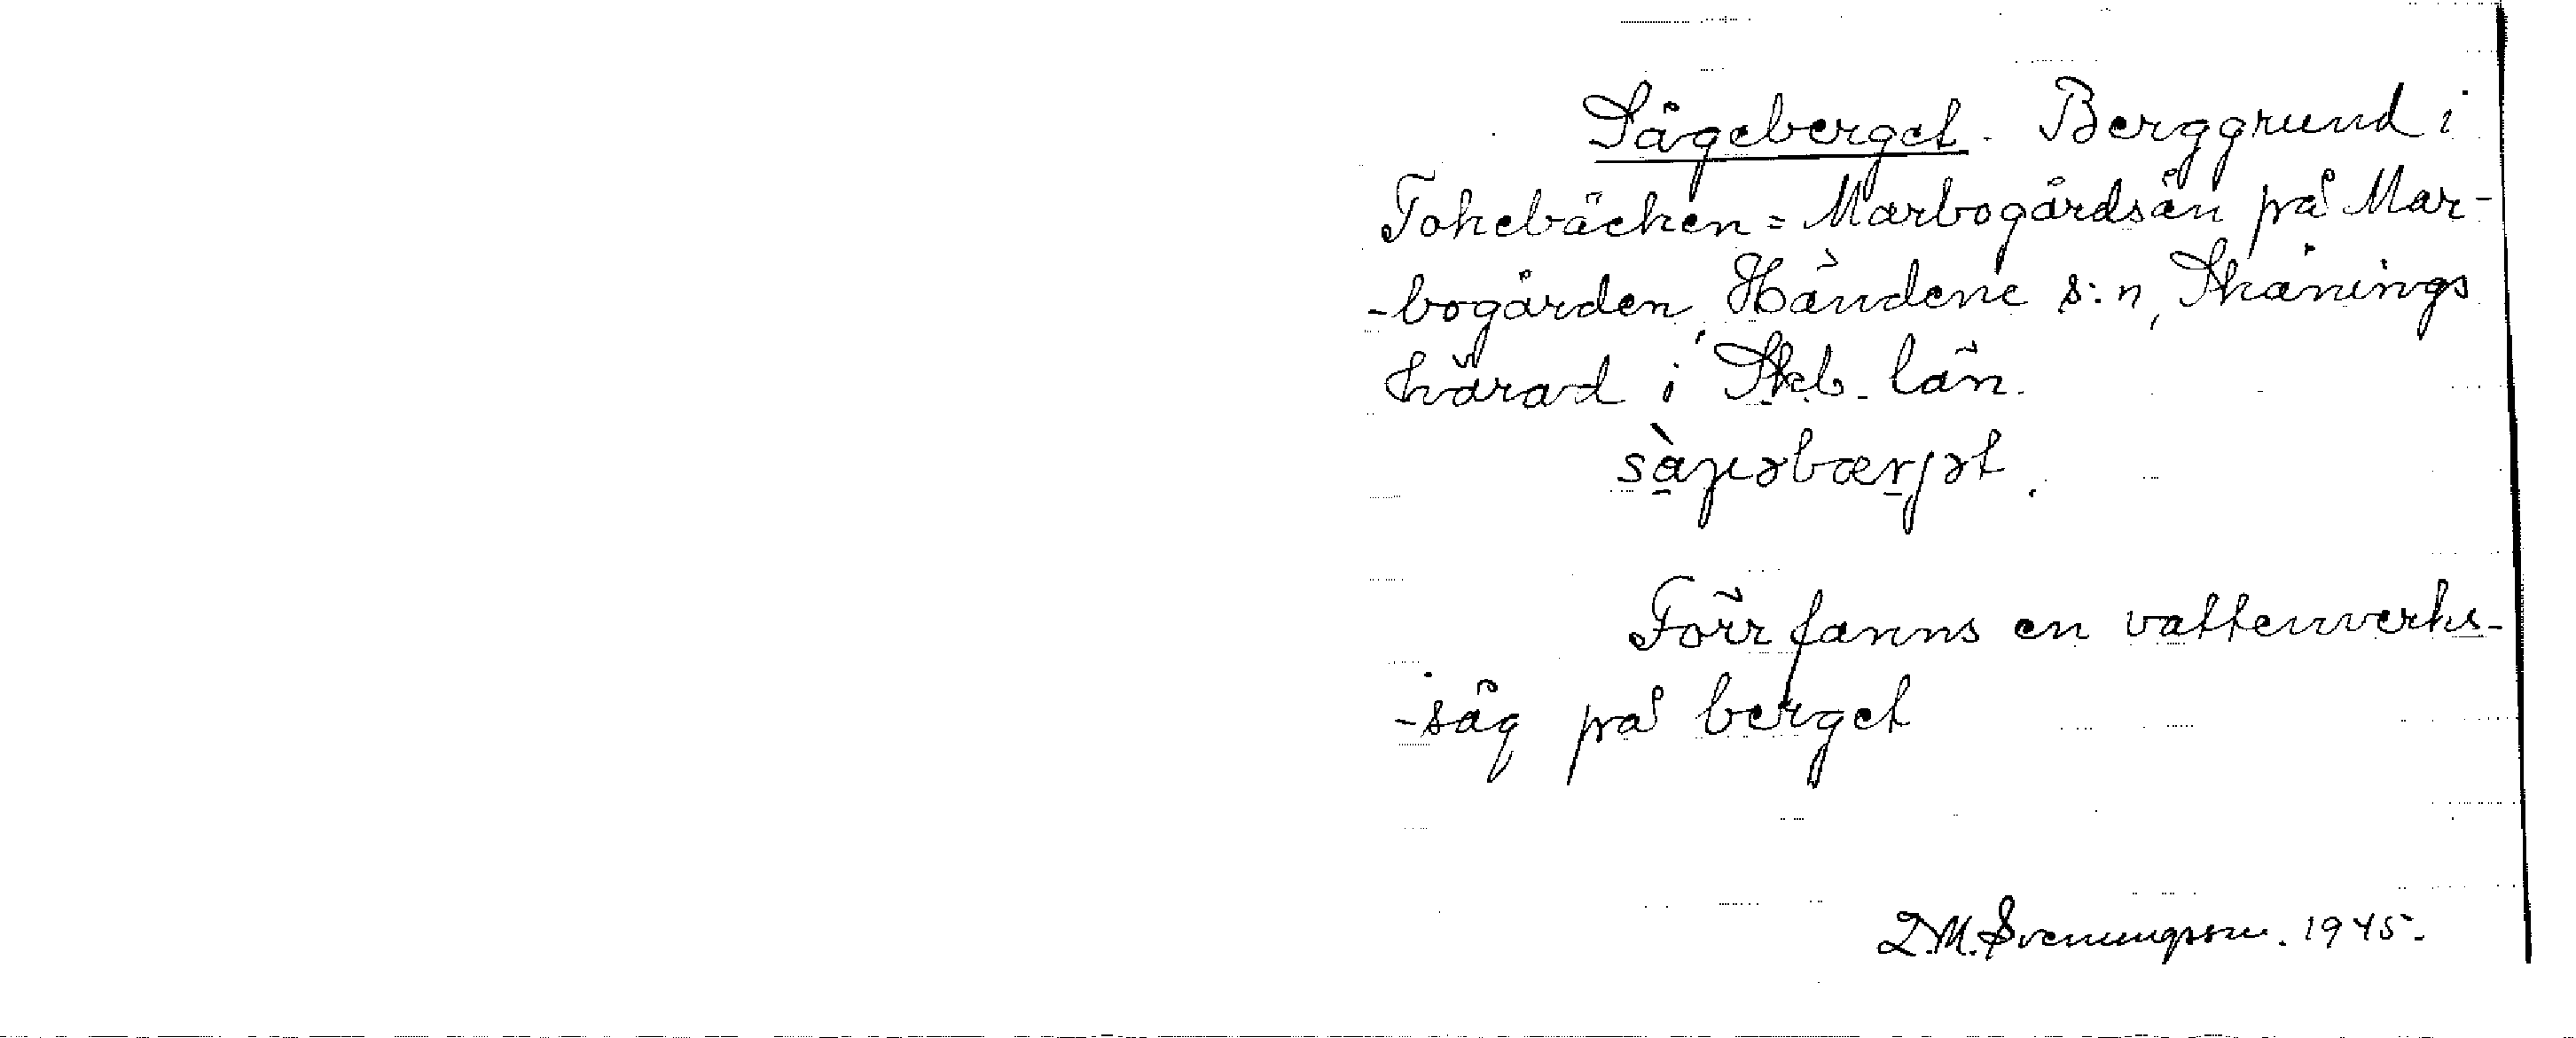 Sågeberget. Berggrund i
Tokebäcken = Marbogårdsån på Mar-
-bogården, Händene s:n, Skånings
härad i Skb. län.
Förr fanns en vattenverks-
-såg på berget
D.M. Svenungsson. 1945.